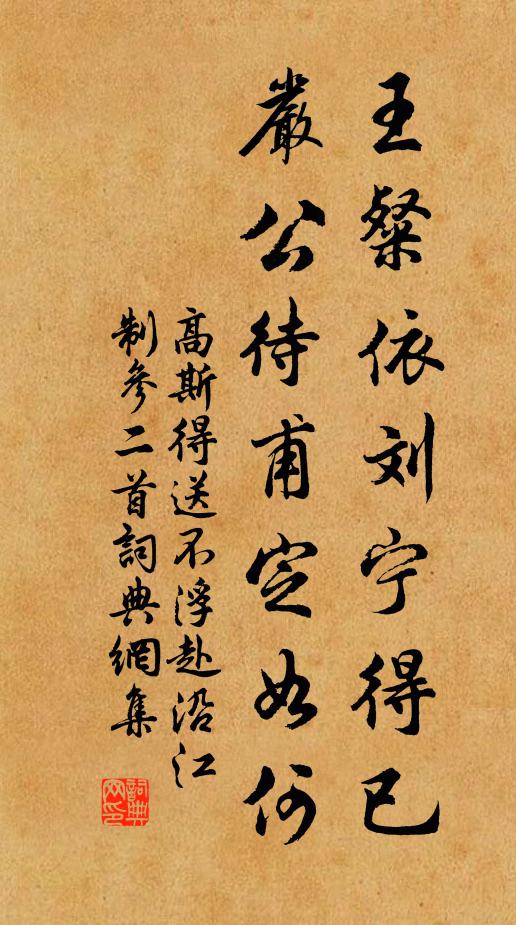 王粲依刘宁得已
嚴公待甫定如何
高斯得送不浮赴沿江
制參二首詞典網集
詞典
网印